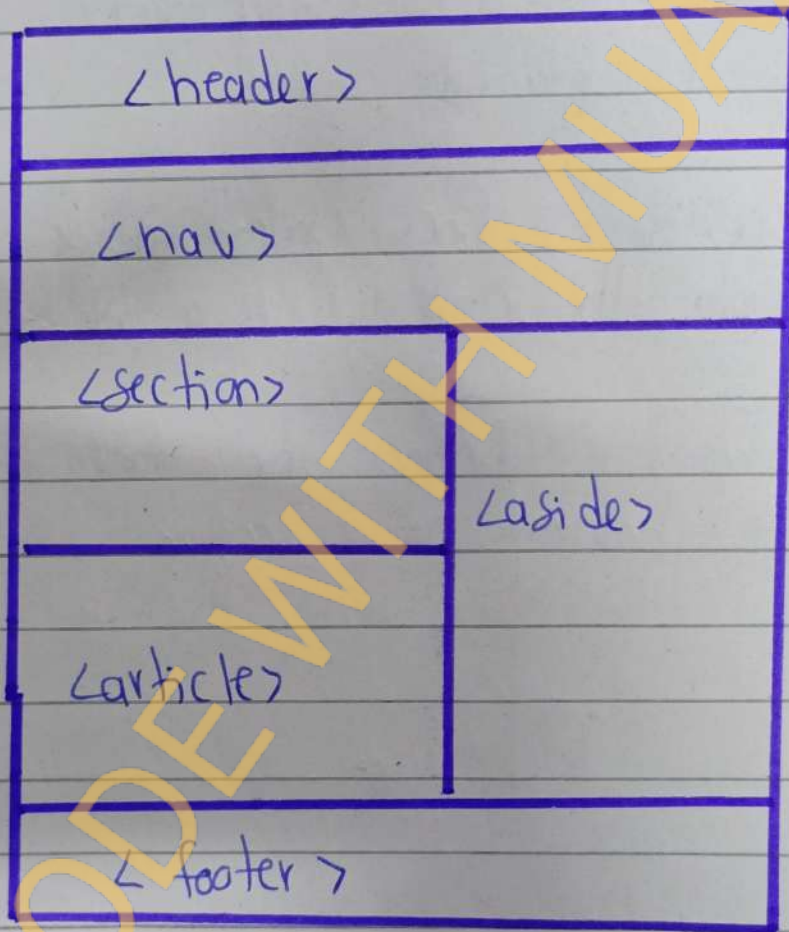 <header>
<nav>
<section>
<aside>
<article>
<footer>
ODE WITH MUA